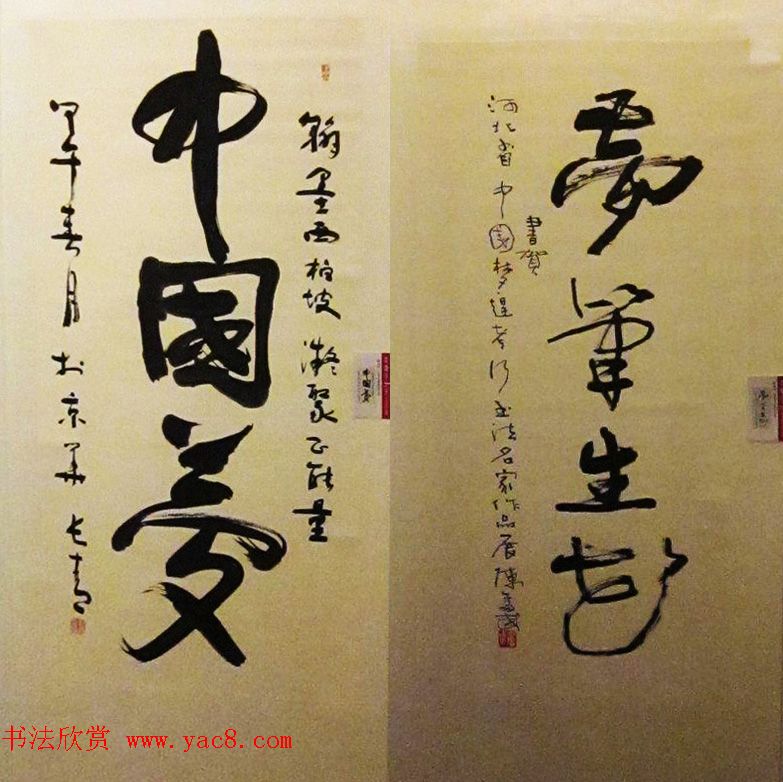 翰墨西柏坡 凝聚正能量
中國夢
甲午春月於京華 长青
中國夢
夢筆生花
書賀
河北省中國梦赶考行书法名家作品展 陳
书法欣赏 www.yac8.com